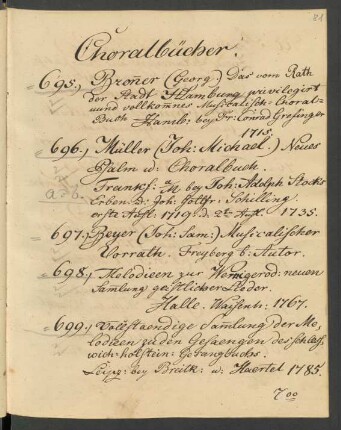 Choralbücher.
695., Broner (Georg.) Das vom Rath
der Stadt Hamburg privilegirt
und vollkomnes Musicalisch: Choral-
Buch Hamb: bey
1715.
696., Müller (Joh: Michael.) Neues
Psalm u: Choralbuch.
Francf: M. bey Joh: Adolph Stocks
Erben. Joh: Schilling
erste Aufl. 1719. 2te Aufl. 1735.
697., Beyer (Joh: Sam:) Musicalischer
Vorrath. Freyberg b: Autor.
698., Melodieen zur Wernigerod: neuen
Samlung geistlicher Lieder.
Halle. Waisenh: 1767.
699., Vollstaendige Samlung der Me-
lodieen zu den Gesaengen des schleß-
wich-holstein: Gesangbuchs.
Leipz: bey Breitk: u. Haertel 1785.
700